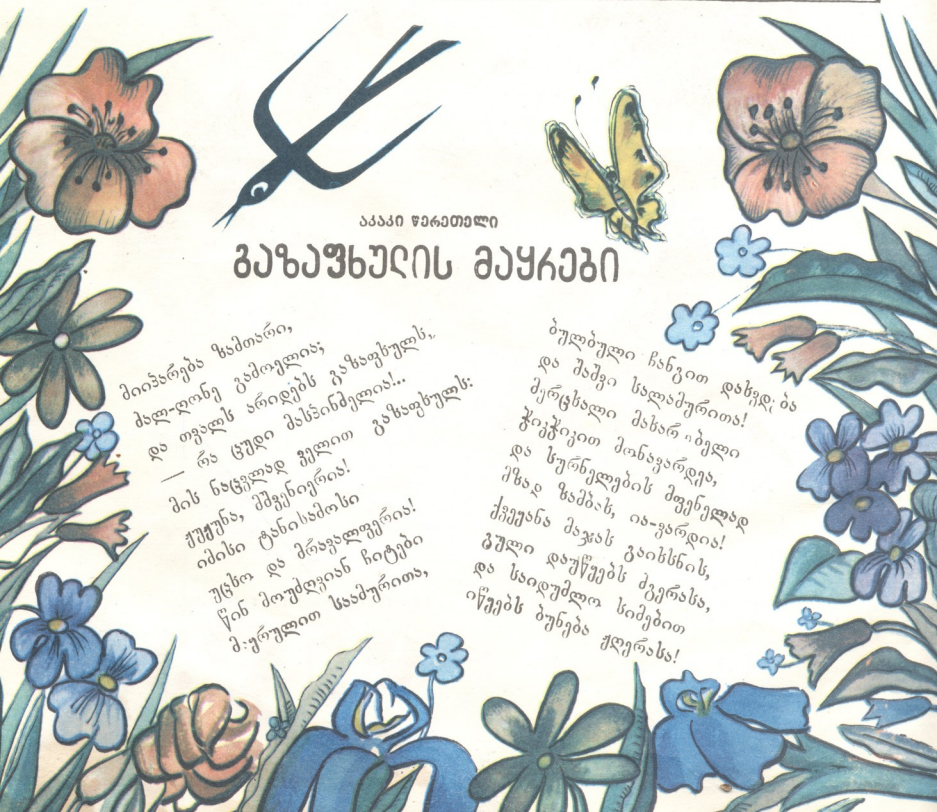 აკაკი წერეთელი
გაზაფხულის მაყრები
მიიპარება ზამთარი,
ძალ-ღონე გამოელია;
და თვალს არიდებს გაზაფხულს,
— რა ცუდი მასპინძელია!...
მის ნაცვლად ველით გაზაფხულს:
ჟუჟუნა, მშვენიერია!
იმისი ტანისამოსი
უცხო და მრავალფერია!
წინ მოუძღვიან ჩიტები
მღერულით საამურითა,
ბულბული ჩანგით დახვდება
და შაშვი სალამურითა!
მერცხალი მახარობელი
ჭიკჭიკით მონავარდეა,
და სურნელების მფენელად
მზად ზამბახ, ია-ვარდია!
ქვეყანა მაჯას გაიხსნის,
გული დაუწყებს ძგერასა,
და საიდუმლო სიმებით
იწყებს ბუნება ჟღერასა!